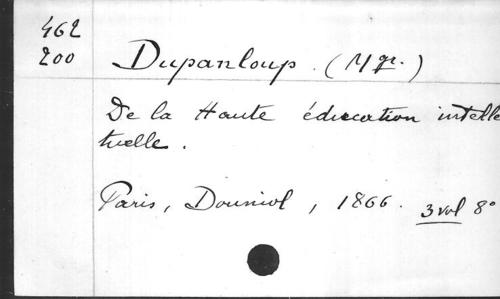 462
200
Dupanloup. (Mgr.)
De la Haute éducation intelle
tuelle.
Paris, Douniol, 1866. 3 vol 8°